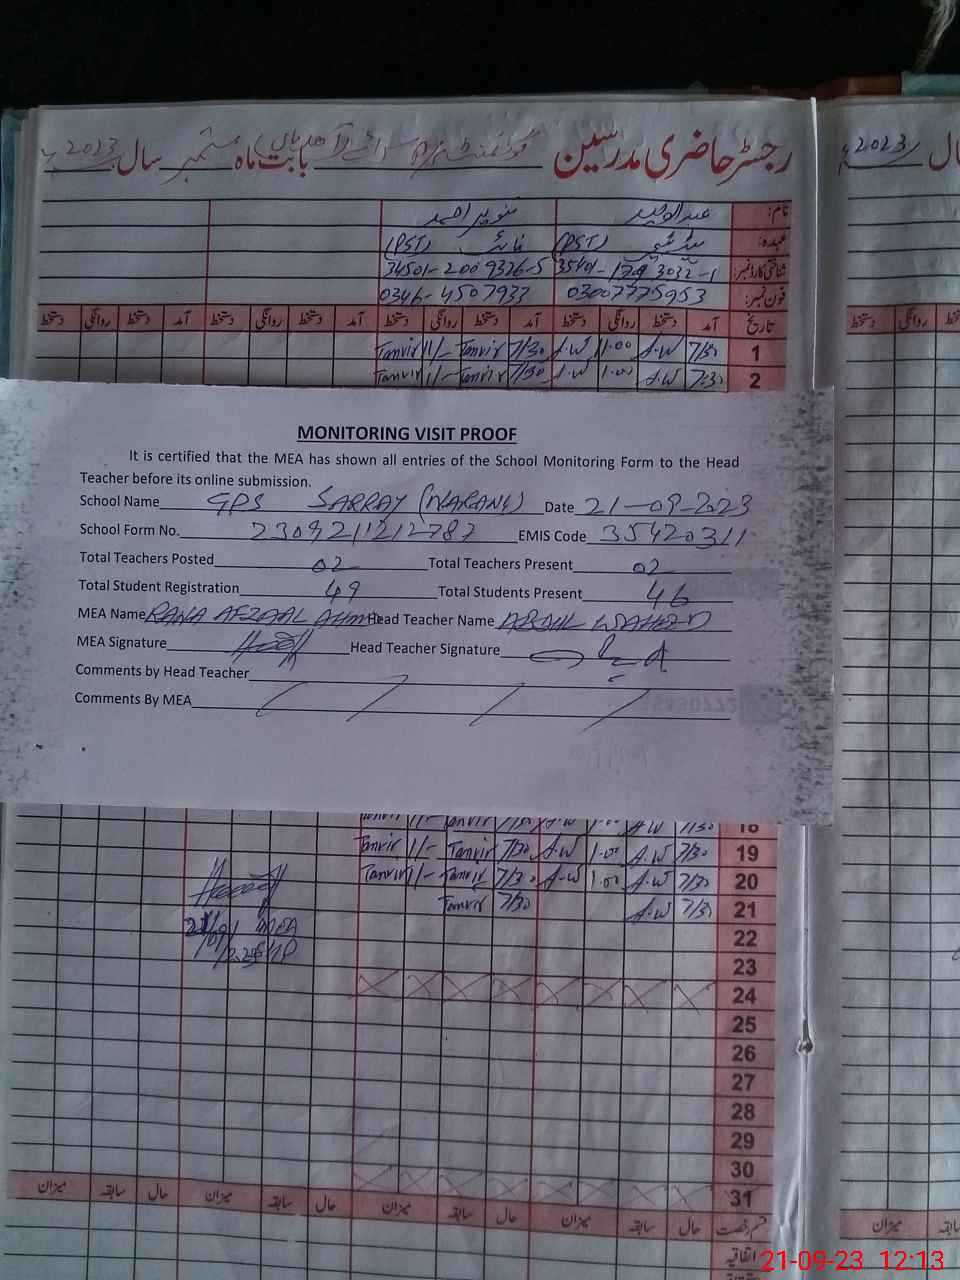 رجسٹر حاضری مدرسین گورنمنٹ بابت ماہ ستمبر سال 2023ء
نام: عبدالوحید تنویر احمد
عہدہ: (PST) (PST)
شناختی کارڈ نمبر: 34501-2009326-5
فون نمبر: 03007775953 0346-4507933
تاریخ آمد دستخط روانگی دستخط آمد دستخط روانگی دستخط آمد دستخط روانگی دستخط آمد دستخط روانگی دستخط
1 7/30 A.W 11.00 A.W 7/30 Tanvir 11/- Tanvir
2 7:30 A.W 1.00 A.W 7/30 Tanvir 1/- Tanvir
MONITORING VISIT PROOF
It is certified that the MEA has shown all entries of the School Monitoring Form to the Head
Teacher before its online submission.
School Name GPS SARRAY (NARANG) Date 21-09-2023
School Form No. 2309211212787 EMIS Code 35420311
Total Teachers Posted 02 Total Teachers Present 02
Total Student Registration 49 Total Students Present 46
MEA Name RANA AFZAAL AHMED Head Teacher Name ABDUL WAHEED
MEA Signature Head Teacher Signature
Comments by Head Teacher
Comments By MEA
18 7/30 A.W 1.00 A.W 7/30 Tanvir Tanvir
19 7/30 A.W 1.00 A.W 7/30 Tanvir 1/- Tanvir
20 7/30 A.W 1.00 A.W 7/30 Tanvir 1/- Tanvir
21 7/30 A.W 7/30 Tanvir
MEA
22
23
24
25
26
27
28
29
30
31
حال سابقہ میزان حال سابقہ میزان حال سابقہ میزان حال سابقہ میزان
قسم رخصت
اتفاقیہ
سال 2023ء
دستخط روانگی دستخط
میزان سابقہ
21-09-23 12:13